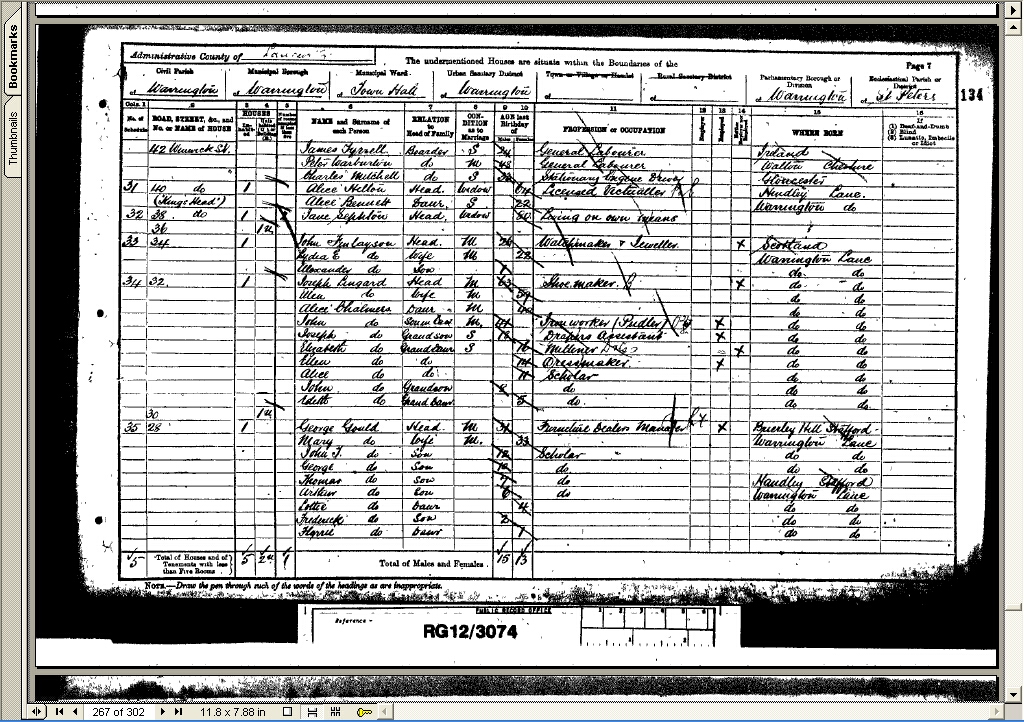 Bookmarks
Thumbnails
Administrative County of
The undermentioned Houses are situate within the Boundaries of the
Page 7
134
Civil Parish
Municipal Borough
Municipal Ward
Urban Sanitary District
Town or Village or Hamlet
Rural Sanitary District
Parliamentary Borough or Division
Ecclesiastical Parish or District
of Warrington of Warrington of Town Hall of Warrington of of of Warrington of St Peters
Cols. 1 2 3 4 5 6 7 8 9 10 11 12 13 14 15 16
No. of Schedule
ROAD, STREET, &c., and No. or NAME of HOUSE
HOUSES
NAME and Surname of each Person
RELATION to Head of Family
CONDITION as to Marriage
AGE last Birthday of
PROFESSION or OCCUPATION
WHERE BORN
If (1) Deaf-and-Dumb (2) Blind (3) Lunatic, Imbecile or Idiot
James Tyrrell Boarder S General Labourer Ireland
Peter Warburton do M General Labourer Walton Cheshire
Charles Mitchell do S Stationary Engine Driver Gloucester
31 40 do 1 Alice Hilton Head Widow Licensed Victualler Hindley Lanc.
(Kings Head) Alice Bennett Daur. S 22 Warrington do
32 38 do 1 Jane Head. Widow Living on own means
36 1u
33 34 1 John Finlayson Head. M 26 Watchmaker & Jeweller X Scotland
Lydia E do Wife M 22 Warrington Lanc
Alexander do Son do do
34 32 1 Joseph Lingard Head M Shoe maker X do do
Ellen do Wife M do do
Alice Chalmers Daur M do do
John do Son in Law M. Iron worker (Pudler) X do do
Joseph do Grandson S Drapers Assistant X do do
Elizabeth do Grand Daur S Milliner X do do
Ellen do do 14 Dressmaker X do do
Alice do do 11 Scholar do do
John do Grandson do. do do
Edith do Grand Daur 5 do. do do
30 1u
35 28 1 George Gould Head. M 31 Furniture Dealers Manager X Brierley Hill Stafford
Mary do Wife M. 33 Warrington Lanc
John T. do Son 12 Scholar do do
George do Son 10 do. do do
Thomas do Son 7 do Handley Stafford
Arthur do Son 6 do Warrington Lanc
Lottie do Daur 4 do do
Frederick do Son 2 do do
do Daur 1 do do
5 Total of Houses and of Tenements with less than Five Rooms 5 2u 1 Total of Males and Females 15 13
NOTE.—Draw the pen through such of the words of the headings as are inappropriate.
PUBLIC RECORD OFFICE
Reference -
RG12/3074
1 2 3 4 5 6
1 2
267 of 302
11.8 x 7.88 in